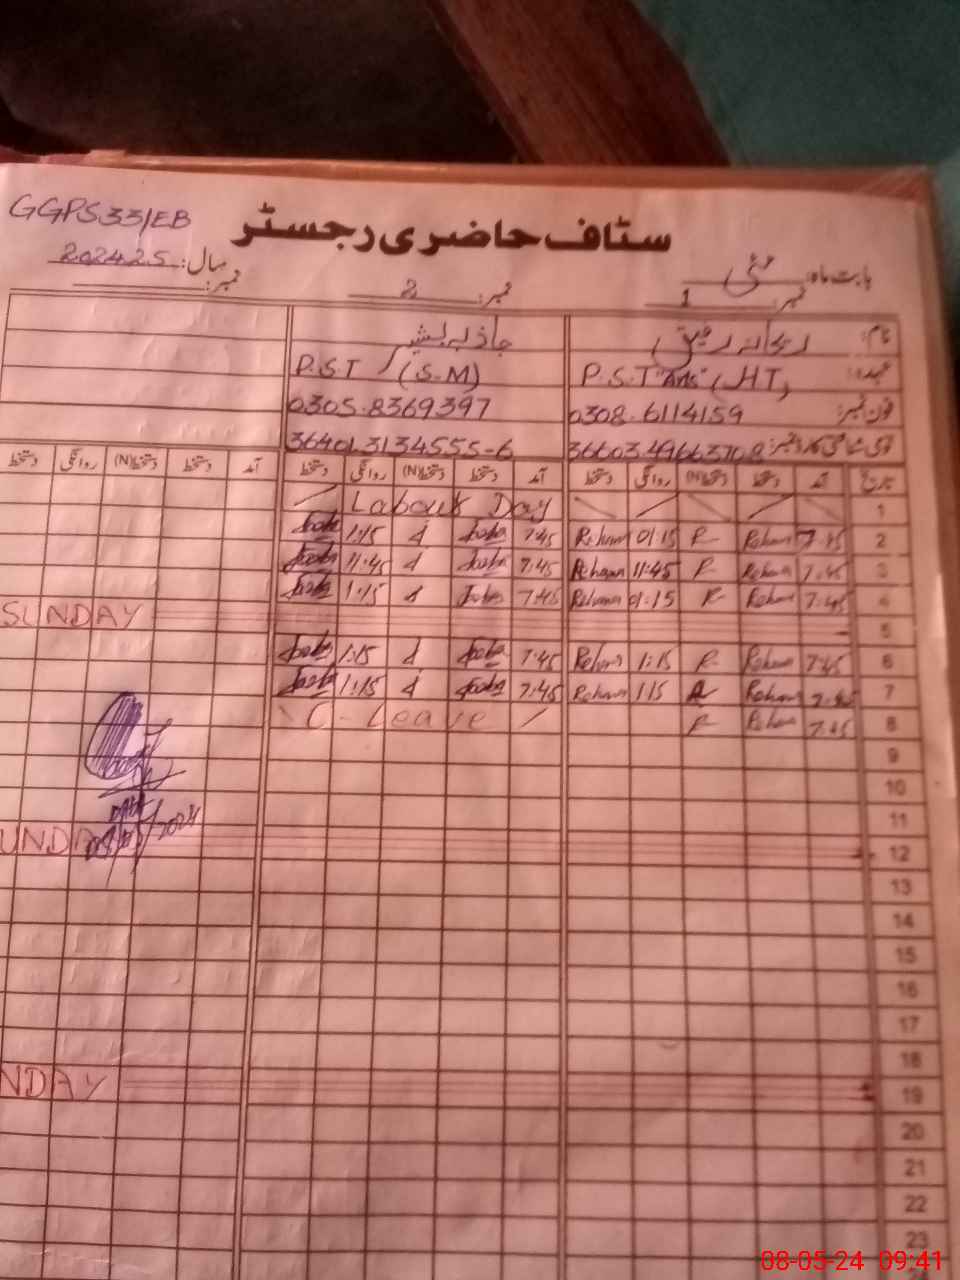 GGPS 33/EB
سٹاف حاضری رجسٹر
بابت ماہ: مئی سال: 2024.25
نمبر: 1 نمبر: 2 نمبر:
نام: ریحانہ رفیق جاذبہ بشیر
عہدہ: P.S.T "Arts" (HT) P.S.T (S.M)
فون نمبر: 0308.6114159 0305.8369397
36401.3134555-6
تاریخ آمد دستخط دستخط(N) روانگی دستخط آمد دستخط دستخط(N) روانگی دستخط آمد دستخط دستخط(N) روانگی دستخط
1 Labour Day
2 7.45 Rehana R 01:15 Rehana 7:45 1:15
3 7.45 Rehana R 11:45 Rehana 7:45 11:45
4 7:45 Rehana R 01:15 Rehana 7:45 1:15
5 SUNDAY
6 7:45 Rehana R 1:15 Rehana 7:45 1:15
7 Rehana R 1:15 Rehana 7:45 1:15
8 7:45 Rehana R C-Leave
9
10
11
12 UNDAY
DATE
13
14
15
16
17
18
19 NDAY
20
21
22
23
08-05-24 09:41